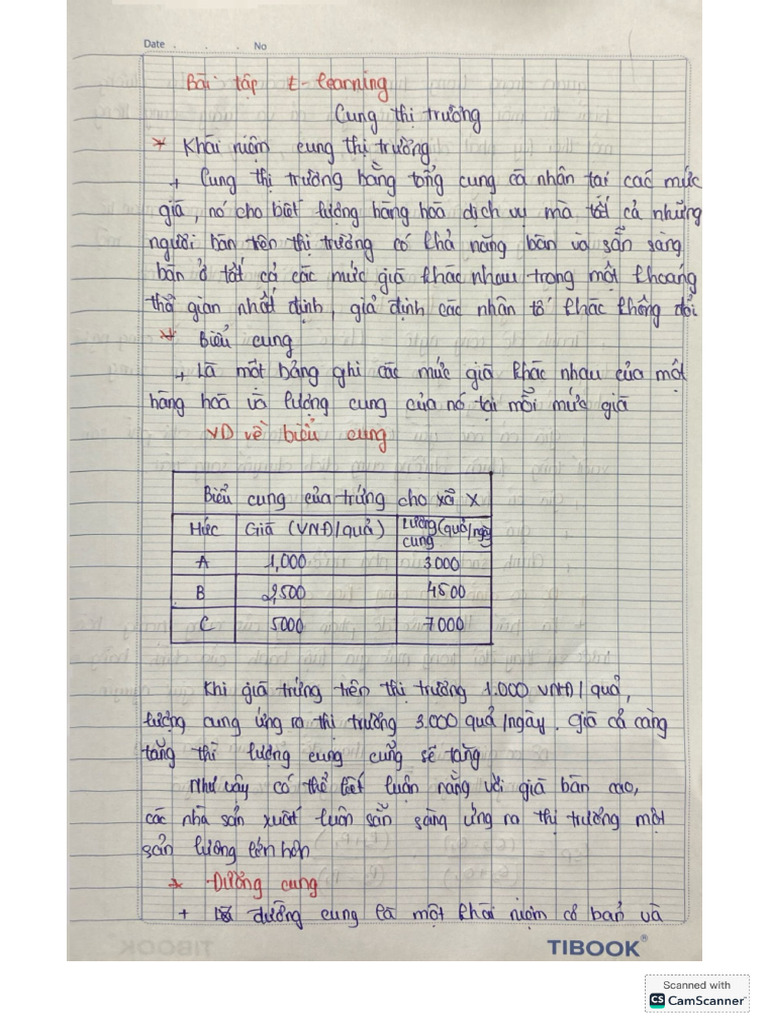 Date . . . No
Bài tập E-learning
Cung thị trường
* Khái niệm cung thị trường
+ Cung thị trường bằng tổng cung cá nhân tại các mức
giá, nó cho biết lượng hàng hóa dịch vụ mà tất cả những
người bán trên thị trường có khả năng bán và sẵn sàng
bán ở tất cả các mức giá khác nhau trong một khoảng
thời gian nhất định, giả định các nhân tố khác không đổi
* Biểu cung
+ Là một bảng ghi các mức giá khác nhau của một
hàng hóa và lượng cung của nó tại mỗi mức giá
VD về biểu cung
Biểu cung của trứng cho xã X
Mức Giá (VNĐ/quả) Lượng cung (quả/ngày)
A 1,000 3000
B 2,500 4500
C 5000 7000
Khi giá trứng trên thị trường 1.000 VNĐ/quả,
lượng cung ứng ra thị trường 3.000 quả/ngày. giá cả càng
tăng thì lượng cung cũng sẽ tăng
Như vậy có thể kết luận rằng với giá bán cao,
các nhà sản xuất luôn sẵn sàng ứng ra thị trường một
sản lượng lớn hơn
* Đường cung
+ đường cung là một khái niệm cơ bản và
TIBOOK®
Scanned with
CS CamScanner